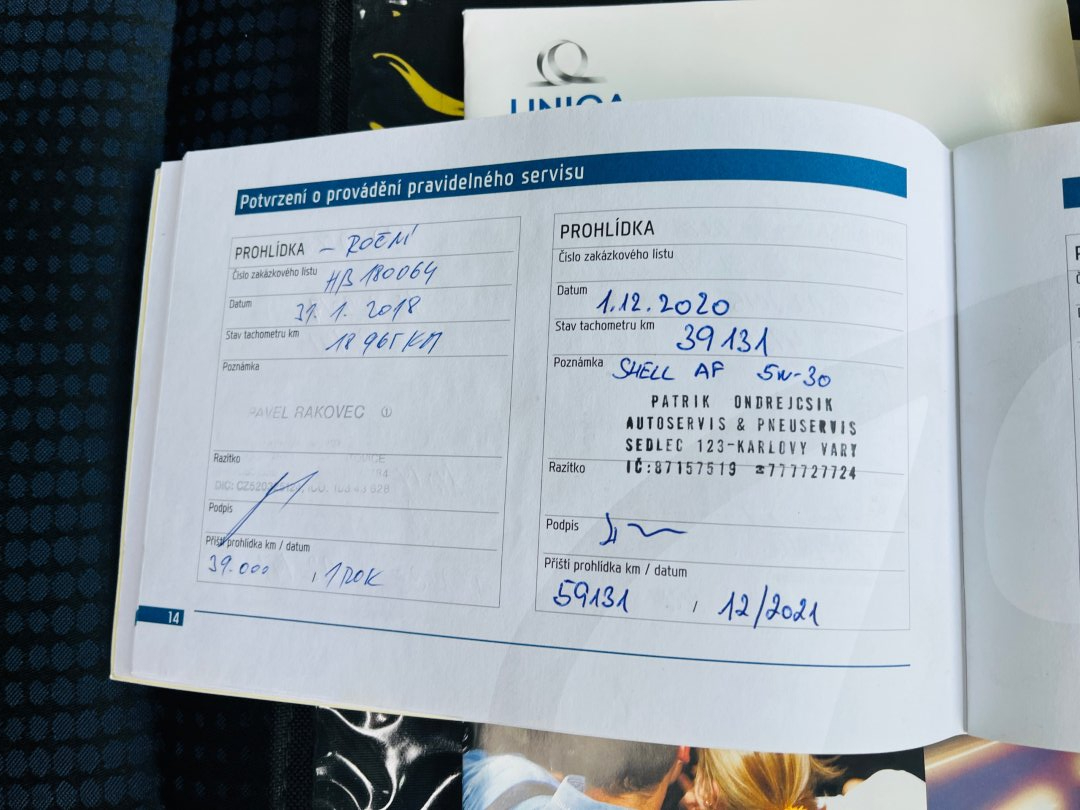 UNIQA
Potvrzení o provádění pravidelného servisu
PROHLÍDKA – ROČNÍ
Číslo zakázkového listu HB 180064
Datum 31. 1. 2018
Stav tachometru km 18 965 KM
Poznámka
PAVEL RAKOVEC
Razítko
Podpis
Příští prohlídka km / datum
39.000 / 1 ROK
14
PROHLÍDKA
Číslo zakázkového listu
Datum 1.12.2020
Stav tachometru km 39131
Poznámka SHELL AF 5W-30
PATRIK ONDREJCSIK
AUTOSERVIS & PNEUSERVIS
SEDLEC 123-KARLOVY VARY
IČ:87157519 ☎777727724
Razítko
Podpis
Příští prohlídka km / datum
59131 / 12/2021